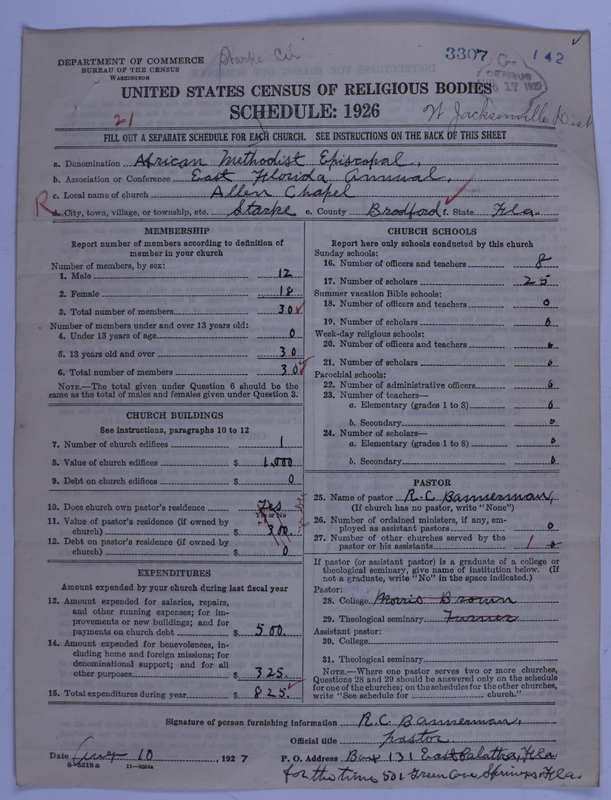 DEPARTMENT OF COMMERCE
BUREAU OF THE CENSUS
WASHINGTON
Starke Cir
3307 142
UNITED STATES CENSUS OF RELIGIOUS BODIES
SCHEDULE: 1926
W Jacksonville Dist
21
FILL OUT A SEPARATE SCHEDULE FOR EACH CHURCH. SEE INSTRUCTIONS ON THE BACK OF THIS SHEET
a. Denomination African Methodist Episcopal.
b. Association or Conference East Florida Annual.
c. Local name of church Allen Chapel
R d. City, town, village, or township, etc. Starke e. County Bradford f. State Fla.
MEMBERSHIP
Report number of members according to definition of
member in your church
Number of members, by sex:
1. Male 12
2. Female 18
3. Total number of members 30
Number of members under and over 13 years old:
4. Under 13 years of age 0
5. 13 years old and over 30
6. Total number of members 30
NOTE.—The total given under Question 6 should be the
same as the total of males and females given under Question 3.
CHURCH BUILDINGS
See instructions, paragraphs 10 to 12
7. Number of church edifices 1
8. Value of church edifices $ 1,000
9. Debt on church edifices $ 0
10. Does church own pastor's residence Yes
Yes or No
11. Value of pastor's residence (if owned by
church) $ 300.
12. Debt on pastor's residence (if owned by
church) $ 0
EXPENDITURES
Amount expended by your church during last fiscal year
13. Amount expended for salaries, repairs,
and other running expenses; for im-
provements or new buildings; and for
payments on church debt $ 500.
14. Amount expended for benevolences, in-
cluding home and foreign missions; for
denominational support; and for all
other purposes $ 325.
15. Total expenditures during year $ 825.
CHURCH SCHOOLS
Report here only schools conducted by this church
Sunday schools:
16. Number of officers and teachers 8
17. Number of scholars 25
Summer vacation Bible schools:
18. Number of officers and teachers 0
19. Number of scholars 0
Week-day religious schools:
20. Number of officers and teachers 0
21. Number of scholars 0
Parochial schools:
22. Number of administrative officers 0
23. Number of teachers—
a. Elementary (grades 1 to 8) 0
b. Secondary 0
24. Number of scholars—
a. Elementary (grades 1 to 8) 0
b. Secondary 0
PASTOR
25. Name of pastor R. C. Bannerman,
(If church has no pastor, write "None")
26. Number of ordained ministers, if any, em-
ployed as assistant pastors 0
27. Number of other churches served by the
pastor or his assistants 1 0
If pastor (or assistant pastor) is a graduate of a college or
theological seminary, give name of institution below. (If
not a graduate, write "No" in the space indicated.)
Pastor:
28. College Morris Brown
29. Theological seminary Turner
Assistant pastor:
30. College
31. Theological seminary
NOTE.—Where one pastor serves two or more churches,
Questions 28 and 29 should be answered only on the schedule
for one of the churches; on the schedules for the other churches,
write "See schedule for church."
Signature of person furnishing information R. C. Bannerman,
Official title Pastor
Date Aug 10 1927 P. O. Address Box 131 East Palatka, Fla
8-5518a 11-9264a
for the time 501 Green Cove Springs, Fla.